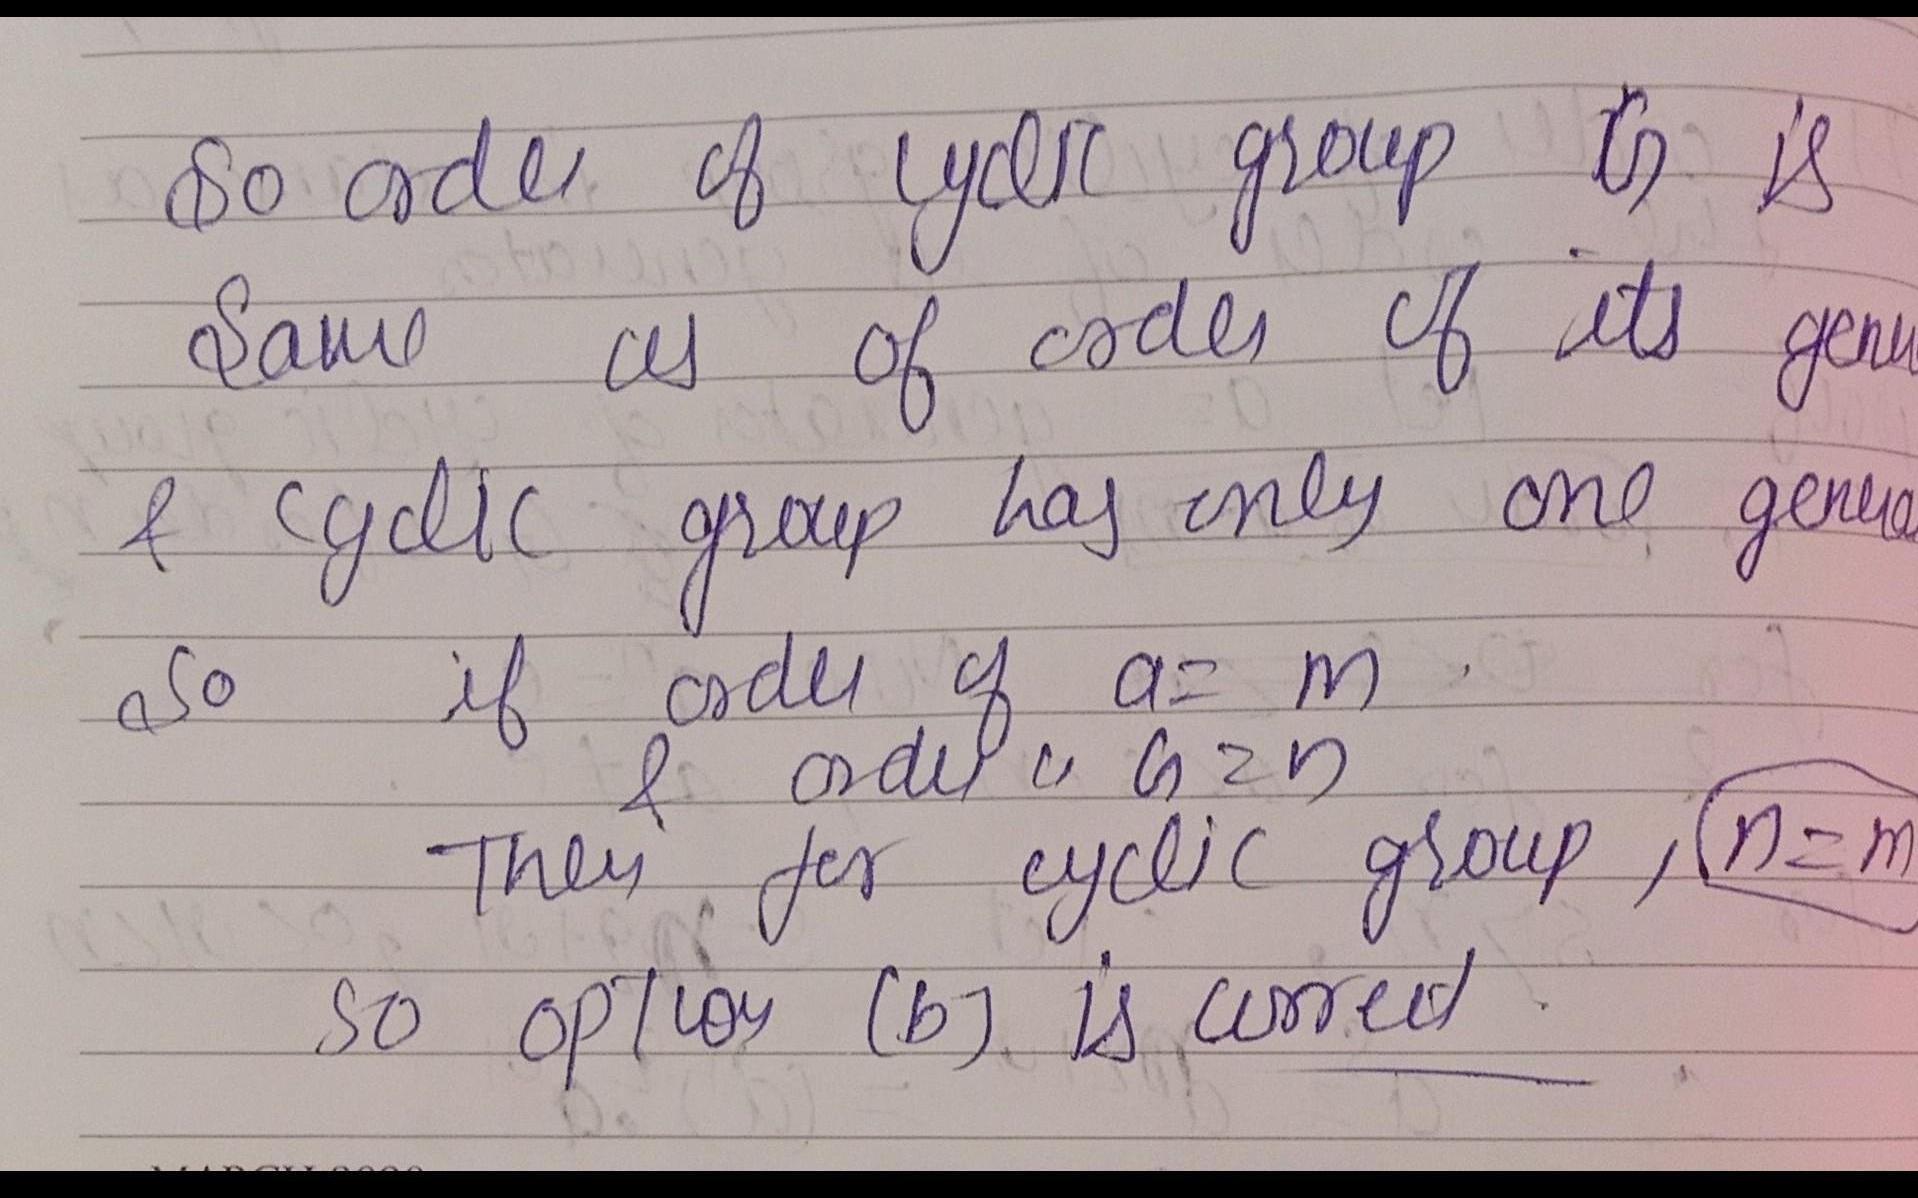 So order of cyclic group G is
Same as of order of its gene
& cyclic group has only one genera
So if order of a = m.
& order " G = n
Then for cyclic group, n = m
so option (b) is correct.